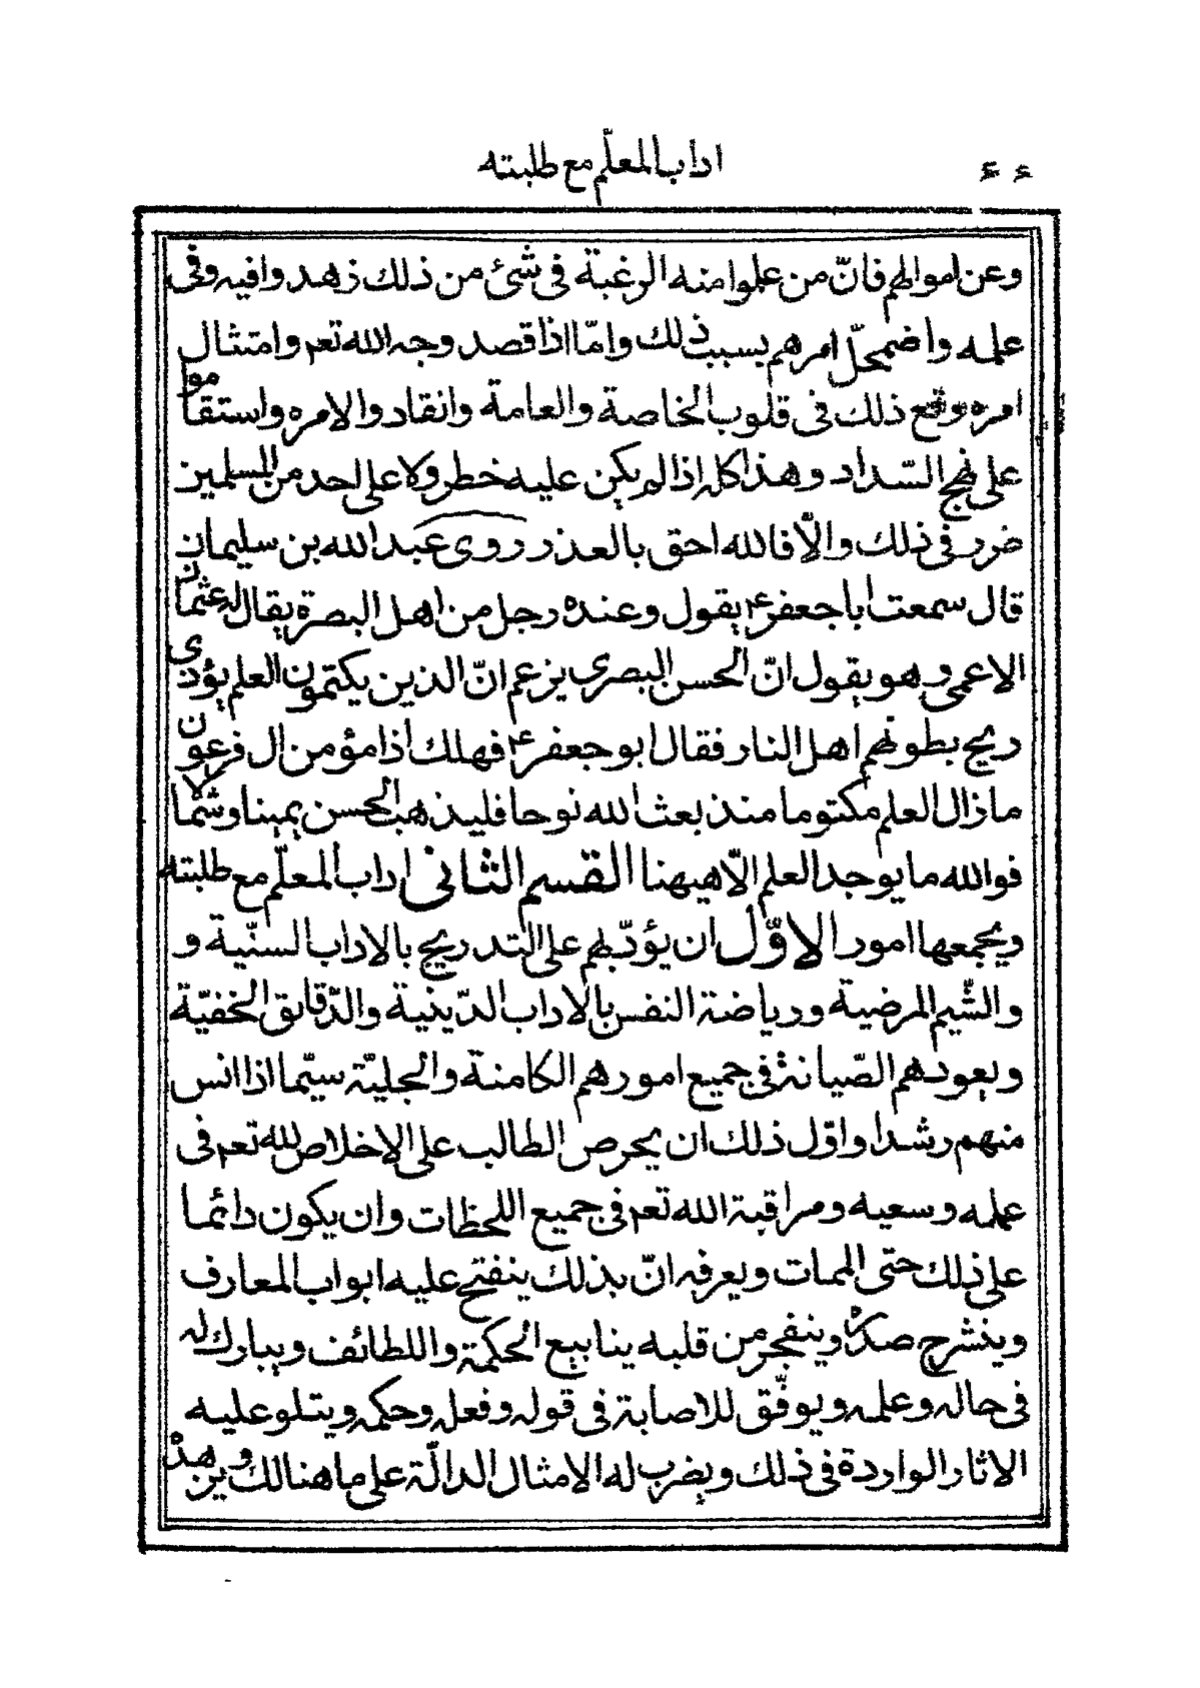 ٤٤ اداب المعلّم مع طلبته
وعن اموالهم فانّ من علموا منه الرغبة فى شئ من ذلك زهدوا فيه وفى
علمه واضمحلّ امرهم بسبب ذلك وامّا اذا قصد وجه الله تعم وامتثال
امره وقع ذلك فى قلوب الخاصة والعامة وانقادوا لامره واستقاموا
على نهج السّداد وهذا كله اذا لم يكن عليه خطر ولا على احد من المسلمين
ضرر فى ذلك والّا فالله احق بالعذر روى عبد الله بن سليمان
قال سمعت ابا جعفر ع يقول وعنده رجل من اهل البصرة يقال له عثمان
الاعمى وهو يقول انّ الحسن البصرى يزعم انّ الذين يكتمون العلم يؤذى
ريح بطونهم اهل النار فقال ابو جعفر ع فهلك اذا مؤمن ال فرعون
مازال العلم مكتوما منذ بعث الله نوحا فليذهب الحسن يمينا وشمالا
فوالله ما يوجد العلم الّا هيهنا القسم الثانى اداب المعلّم مع طلبته
ويجمعها امور الاوّل ان يؤدّبهم على التدريج بالاداب السنّية و
والشّيم المرضية ورياضة النفس بالاداب الدّينية والدّقائق الخفيّة
ويعودهم الصّيانة فى جميع امورهم الكامنة والجليّة سيّما اذا انس
منهم رشدا واوّل ذلك ان يحرص الطالب على الاخلاص لله تعم فى
علمه وسعيه ومراقبة الله تعم فى جميع اللحظات وان يكون دائما
على ذلك حتّى الممات ويعرفه انّ بذلك ينفتح عليه ابواب المعارف
وينشرح صدره وينفجر من قلبه ينابيع الحكمة واللطائف ويبارك له
فى حاله وعلمه ويوفّق للاصابة فى قوله وفعله وحكمه ويتلو عليه
الاثار الواردة فى ذلك ويضرب له الامثال الدالّة على ما هنالك ويزهده